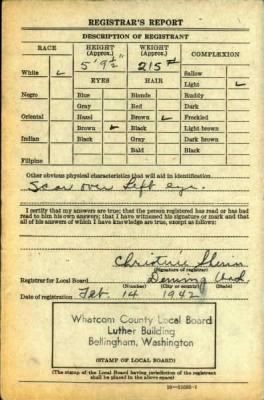 REGISTRAR'S REPORT
DESCRIPTION OF REGISTRANT
RACE HEIGHT (Approx.) WEIGHT (Approx.) COMPLEXION
5' 9½" 215#
White ✓ Sallow
EYES HAIR Light ✓
Negro Blue Blonde Ruddy
Gray Red Dark
Oriental Hazel Brown ✓ Freckled
Brown ✓ Black Light brown
Indian Black Gray Dark brown
Bald Black
Filipino
Other obvious physical characteristics that will aid in identification
Scar over left eye.
I certify that my answers are true; that the person registered has read or has had
read to him his own answers; that I have witnessed his signature or mark and that
all of his answers of which I have knowledge are true, except as follows:
Christine
(Signature of registrar)
Registrar for Local Board Deming Wash.
(Number) (City or county) (State)
Date of registration Feb. 14 1942
Whatcom County Local Board
Luther Building
Bellingham, Washington
(STAMP OF LOCAL BOARD)
(The stamp of the Local Board having jurisdiction of the registrant
shall be placed in the above space)